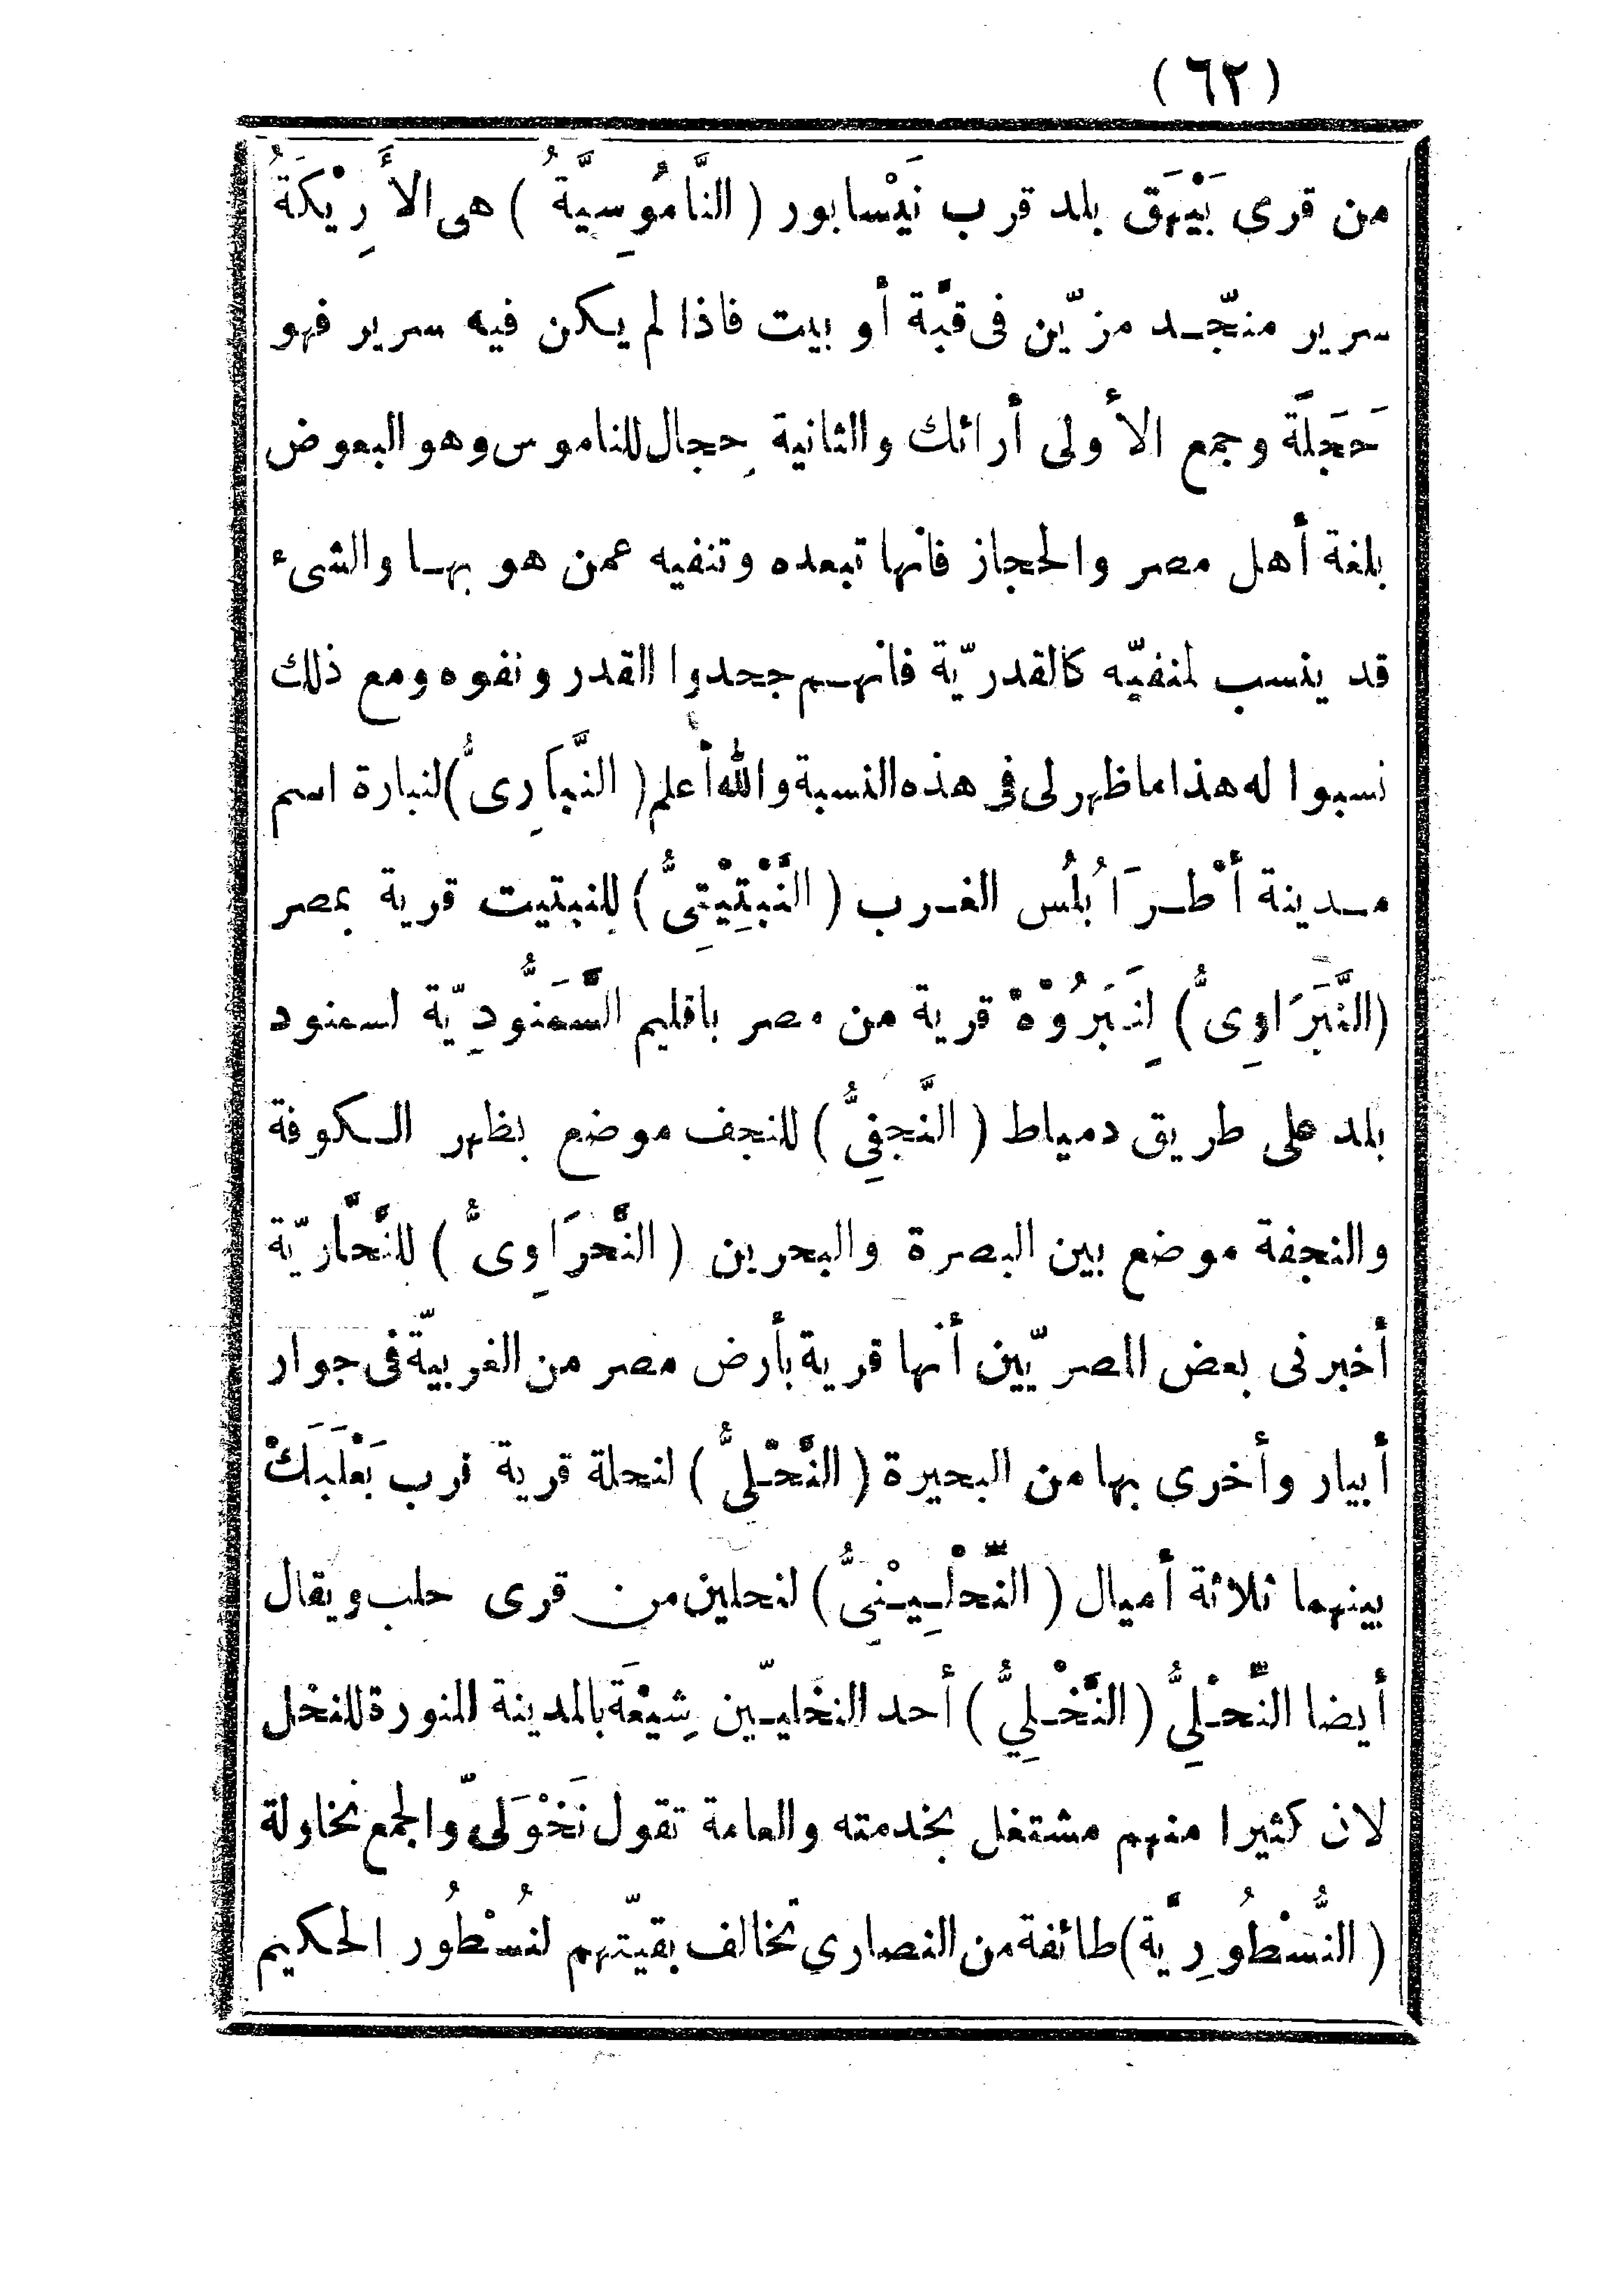 (٦٢)
من قرى بَيْهَق بلد قرب نَيْسابور (النَّامُوسِيَّةُ) هى الأَرِيْكَةُ
سرير منجّد مزيّن فى قبّة أو بيت فاذا لم يكن فيه سرير فهو
حَجَلَة وجمع الأولى أرائك والثانية حِجال للناموس وهو البعوض
بلغة أهل مصر والحجاز فانها تبعده وتنفيه عمن هو بها والشىء
قد ينسب لمنفيّه كالقدريّة فانهم جحدوا القدر ونفوه ومع ذلك
نسبوا له هذا ما ظهر لى فى هذه النسبة والله أعلم (النَّبَارِىُّ) لنبارة اسم
مدينة أطْرَابُلُس الغرب (النَّبْتِيْتِىُّ) للنبتيت قرية بمصر
(النَّبَرَاوِىُّ) لِنَبَرُوْهْ قرية من مصر باقليم السَّمَنُّودِيّة لسمنود
بلد على طريق دمياط (النَّجَفِىُّ) للنجف موضع بظهر الكوفة
والنجفة موضع بين البصرة والبحرين (النَّحْرَاوِىُّ) للنَّحَّاريّة
أخبرنى بعض المصريّين أنها قرية بأرض مصر من الغربيّة فى جوار
أبيار وأخرى بها من البحيرة (النَّحْلِىُّ) لنحلة قرية قرب بَعْلَبَكْ
بينهما ثلاثة أميال (النِّحْلِيْنِىُّ) لنحلين من قرى حلب ويقال
أيضا النِّحْلِىُّ (النَّخْلِيُّ) أحد النخليّين شِيْعَة بالمدينة المنورة للنخل
لان كثيرا منهم مشتغل بخدمته والعامة تقول نَخْوَلىّ والجمع نخاولة
(النُّسْطُورِيَّة) طائفة من النصارى تخالف بقيّتهم لنُسْطُور الحكيم